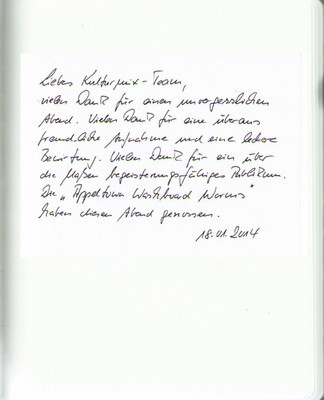 Liebes Kulturmix-Team,
vielen Dank für einen unvergesslichen
Abend. Vielen Dank für eine überaus
freundliche Aufnahme und eine leckere
Bewirtung. Vielen Dank für ein über
die Maßen begeisterungsfähiges Publikum.
Die „Appeltown Washboard Worms"
haben diesen Abend genossen.
18.01.2014